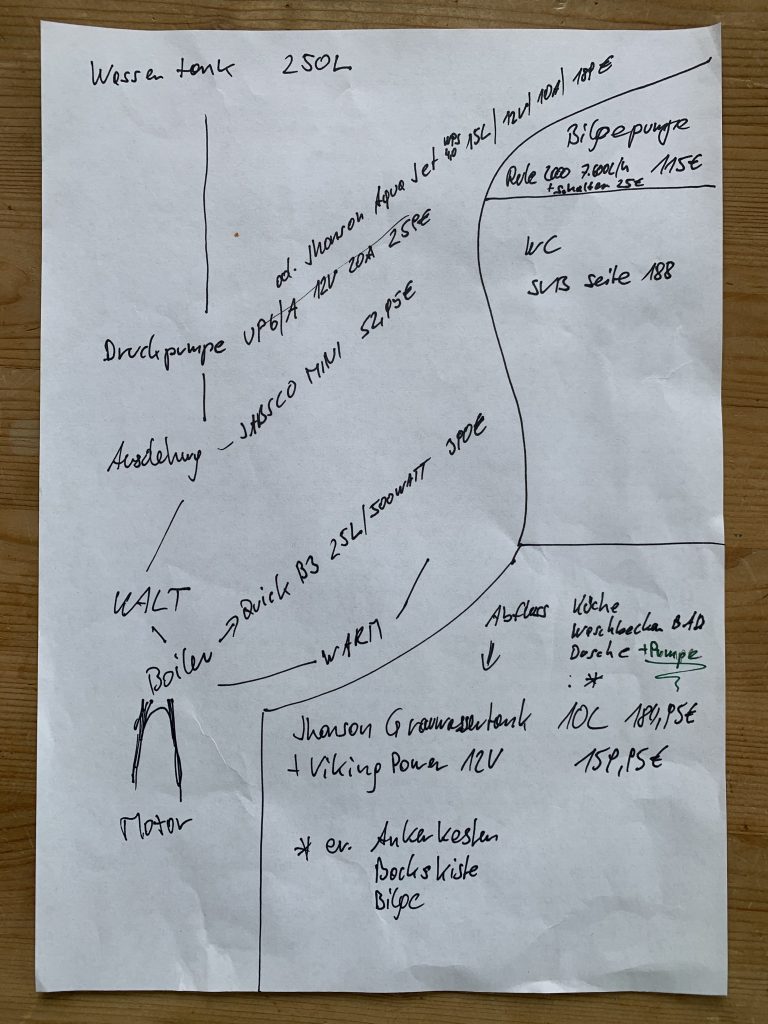 Wassertank 250L
od. Jhonson Aqua Jet WPS 40 15L/12V/10A/189€
Druckpumpe UP6/A 12V 20A 259€
Ausdehung – JABSCO MINI 52,95€
KALT
Boiler → Quick B3 25L/500WATT 390€
WARM
Motor
Bilgepumpe
Rule 2000 7.600L/h 115€
+ schalter 25€
WC
SVB seite 188
Abfluss Küche
Waschbecken BAD
Dusche + Pumpe
: *
Jhonson Grauwassertank 10L 184,95€
+ Viking Power 12V 159,95€
* ev. Ankerkasten
Backskiste
Bilge